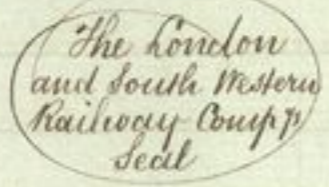 The London
and South Western
Railway Compy
Seal